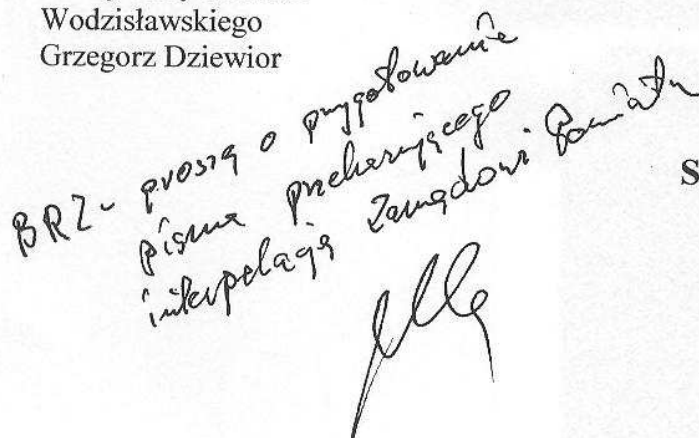 Wodzisławskiego
Grzegorz Dziewior
BRZ- proszę o przygotowanie
pisma przekazującego
interpelację Zarządowi Powiatu
S